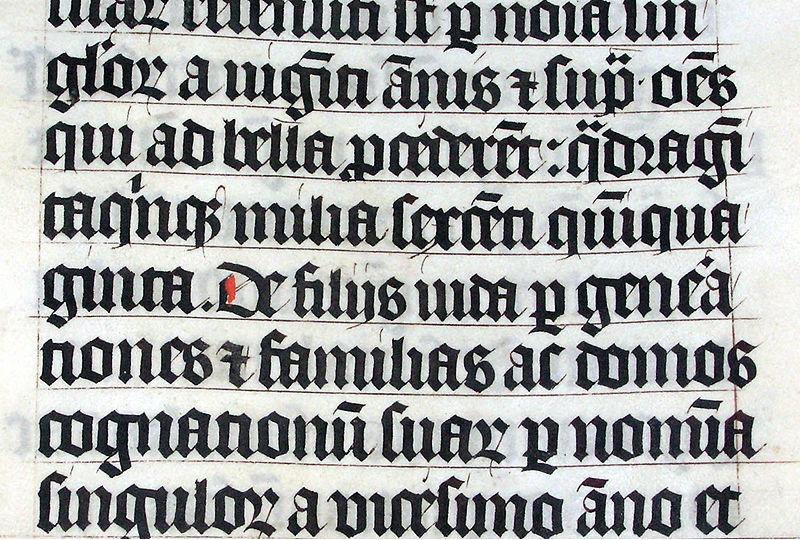 suaꝝ recensiti sūt ꝑ noīa sin
guloꝝ a uigīti ānis ⁊ supͣ · oēs
qui ad bella ꝓcederēt : qͣdragī
taqͥnqꝫ milia sexcēti quīqua
ginta . De filijs iuda ꝑ genēa
tiones ⁊ familias ac domos
cognationū suaꝝ ꝑ nomīa
singuloꝝ a vicesimo āno et